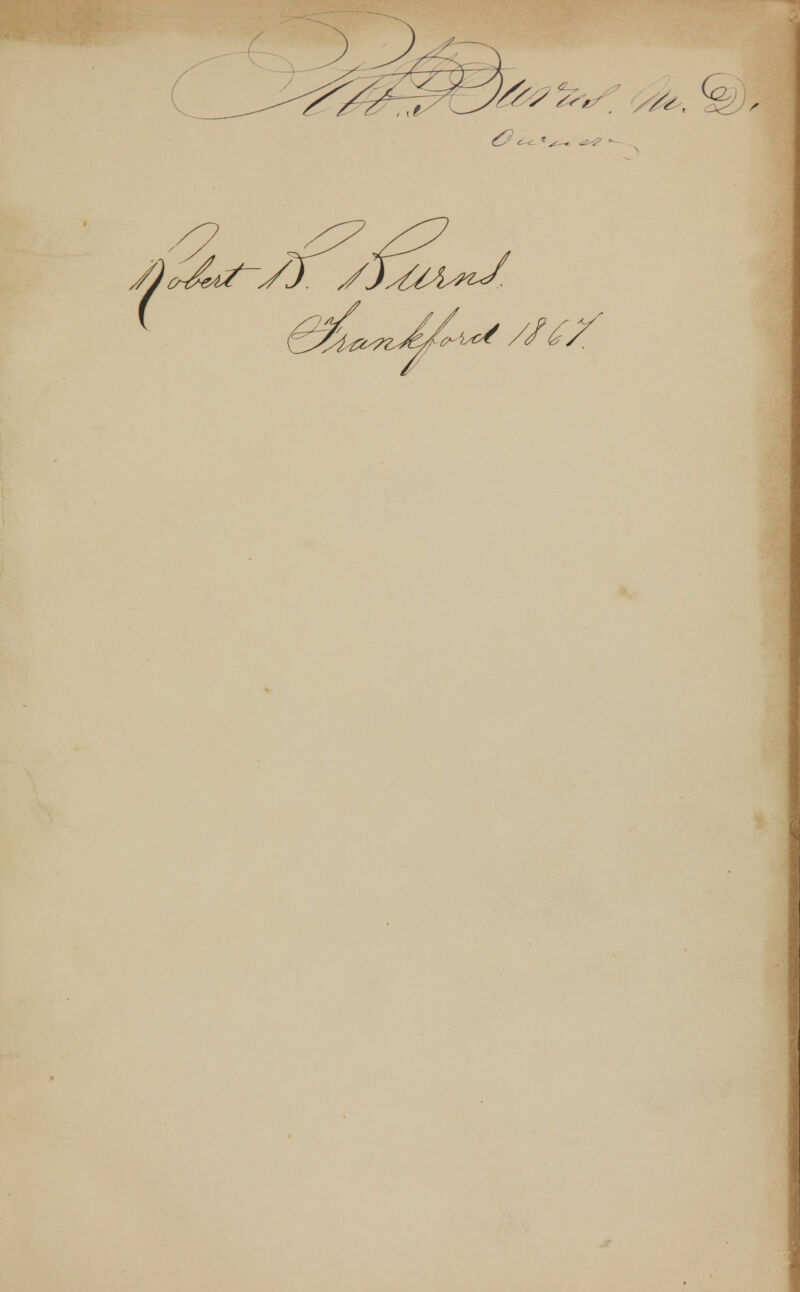 Burns. M. D.
Robert B. Burns.
Frankford 1867.